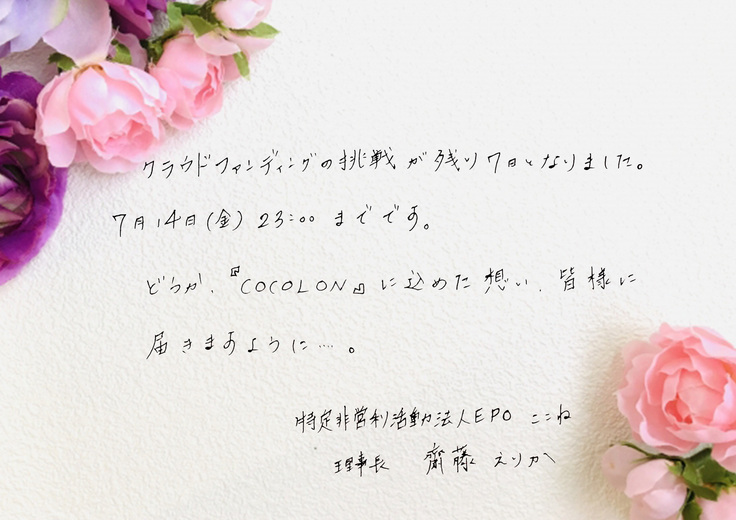 クラウドファンディングの挑戦が残り7日となりました。
7月14日(金) 23:00 までです。
どうか、『COCOLON』に込めた想い、皆様に
届きますように…。
特定非営利活動法人EPO ここね
理事長 齋藤 えりか